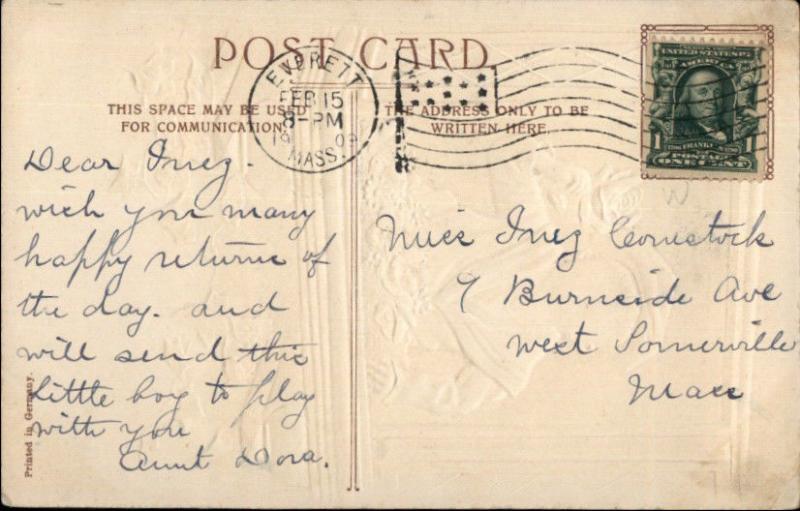 POST CARD.
THIS SPACE MAY BE USED
FOR COMMUNICATION.
THE ADDRESS ONLY TO BE
WRITTEN HERE.
EVERETT
FEB 15
8-PM
1909
MASS.
UNITED STATES OF
AMERICA
1 1
FRANKLIN
POSTAGE
ONE CENT
Dear Inez.
wish you many
happy returns of
the day. and
will send this
little boy to play
with you
Aunt Dora.
Miss Inez Comstock
9 Burnside Ave
West Somerville
Mass
Printed in Germany.